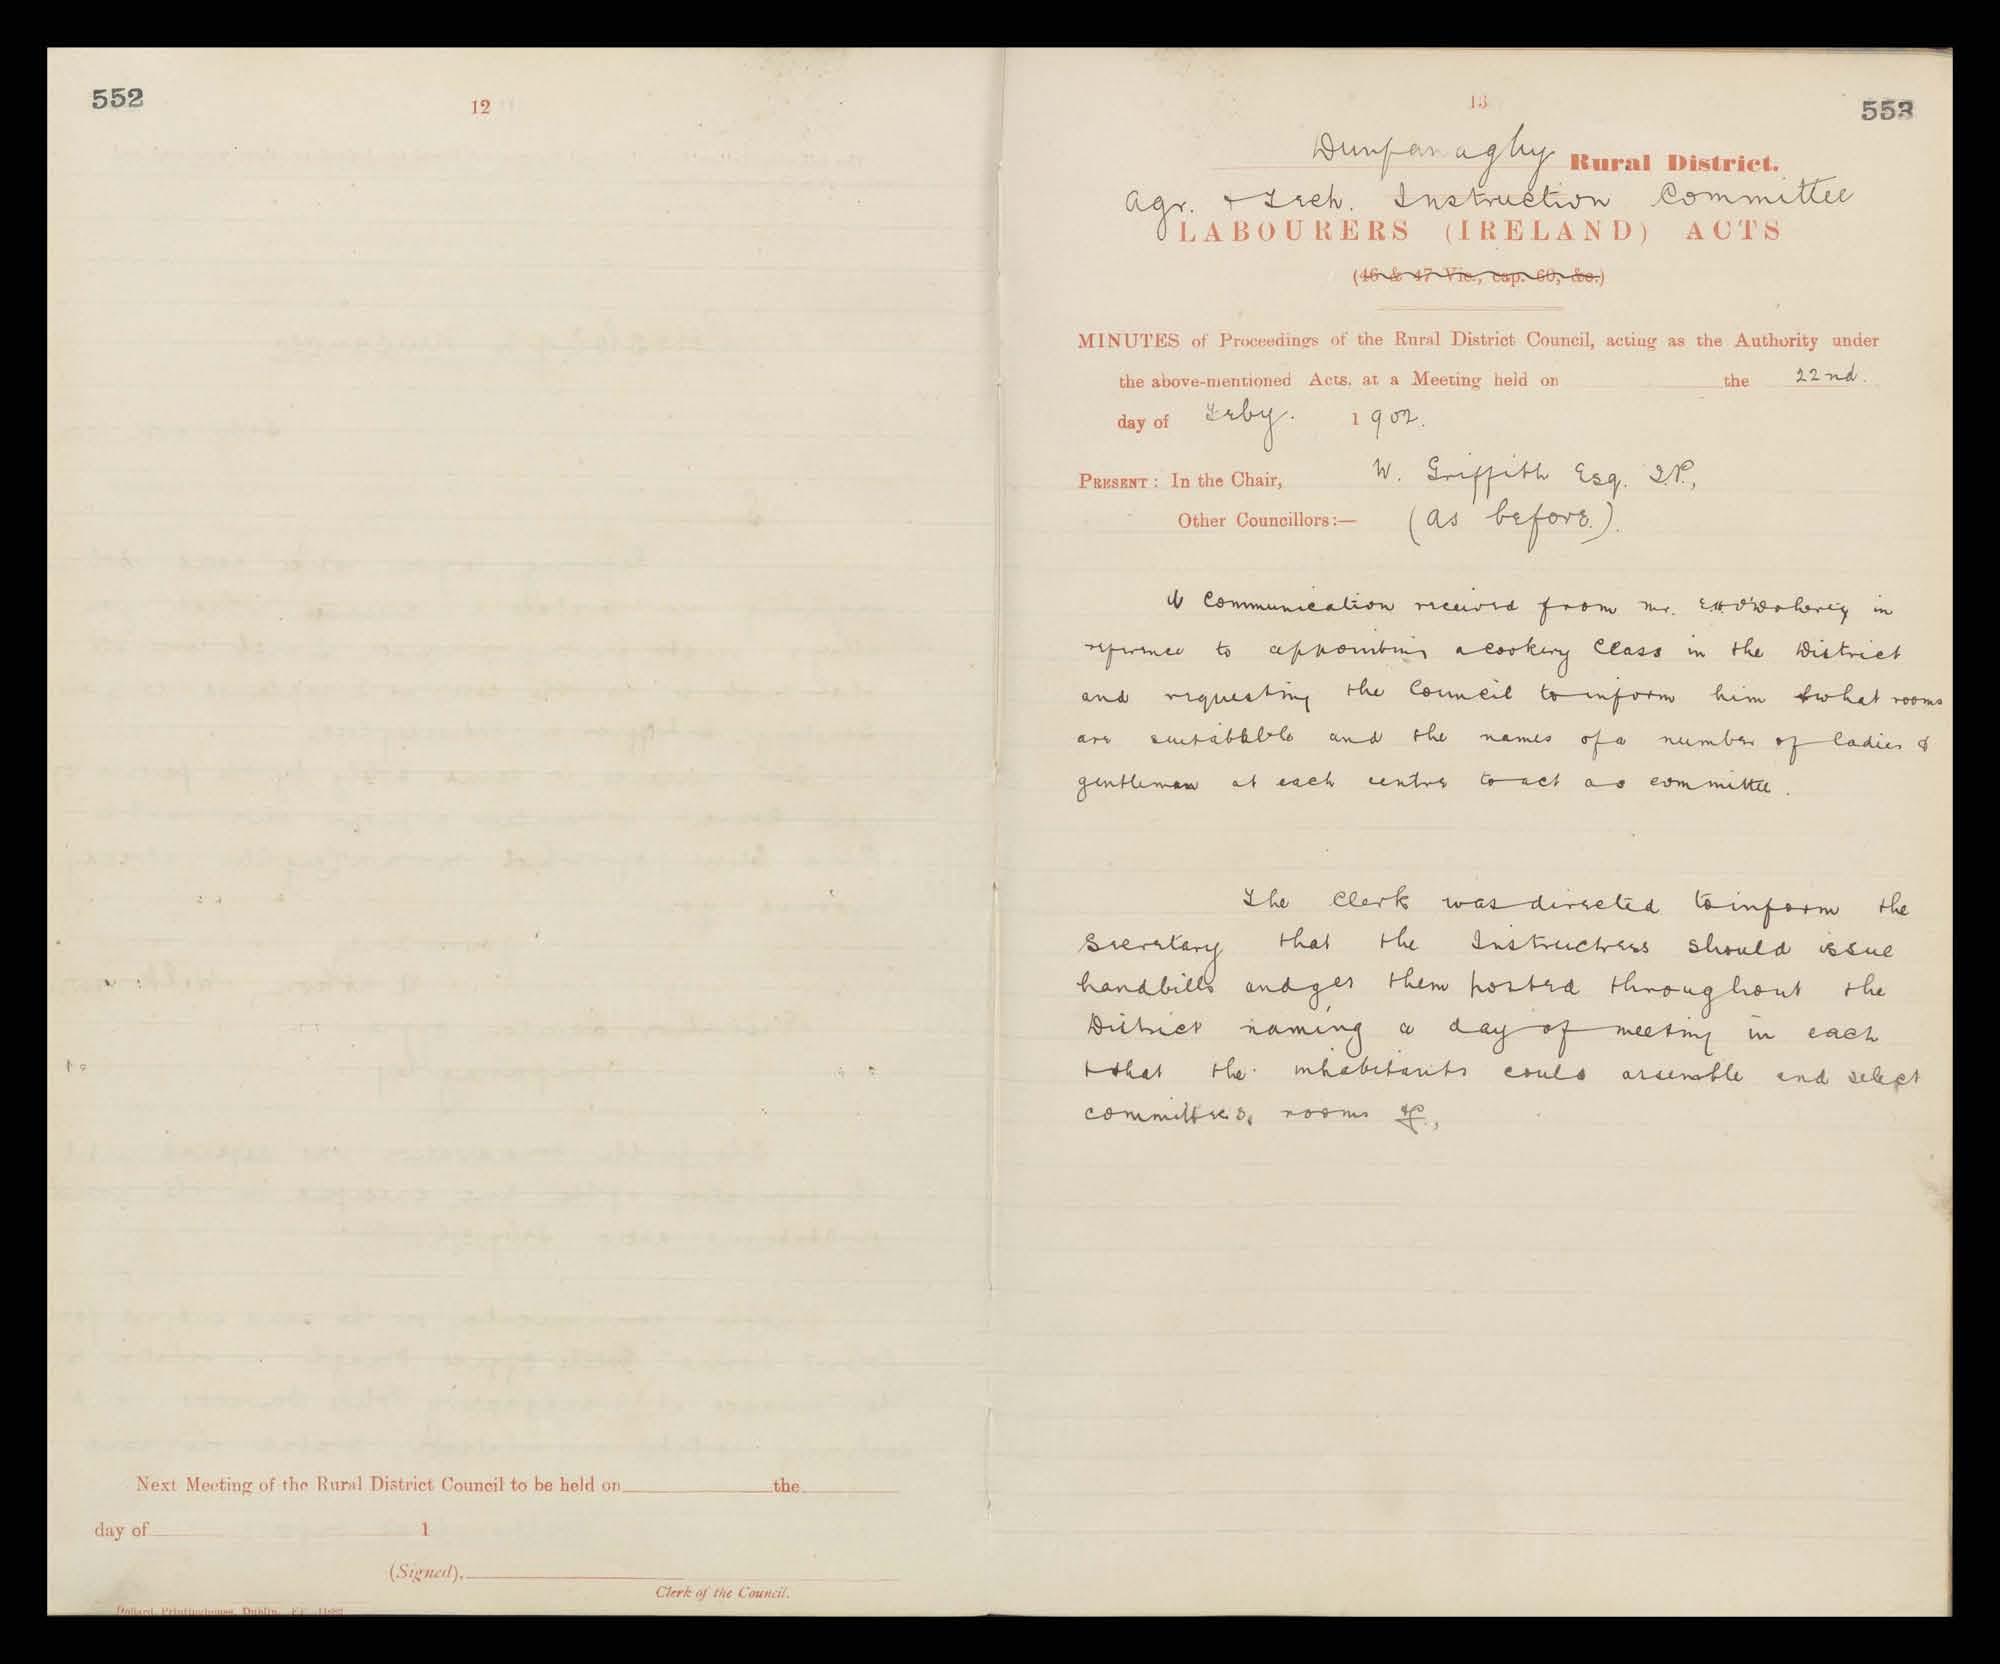 552
12
Next Meeting of the Rural District Council to be held on the
day of 1
(Signed),
Clerk of the Council.
Dollard, Printinghouse, Dublin.
13
553
Dunfanaghy Rural District.
Agr. & Tech. Instruction Committee
LABOURERS (IRELAND) ACTS
(46 & 47 Vic., cap. 60, &c.)
MINUTES of Proceedings of the Rural District Council, acting as the Authority under
the above-mentioned Acts, at a Meeting held on the 22nd.
day of Feby. 1902.
PRESENT: In the Chair, W. Griffith Esq. J.P.,
Other Councillors:— (as before.).
A Communication received from Mr. E.H. O'Doherty in
reference to appointing a cookery Class in the District
and requesting the Council to inform him what rooms
are suitable and the names of a number of ladies &
gentleman at each centre to act as committee.
The Clerk was directed to inform the
Secretary that the Instructress should issue
handbills and get them posted throughout the
District naming a day of meeting in each
that the inhabitants could assemble and select
committees, rooms &c.,